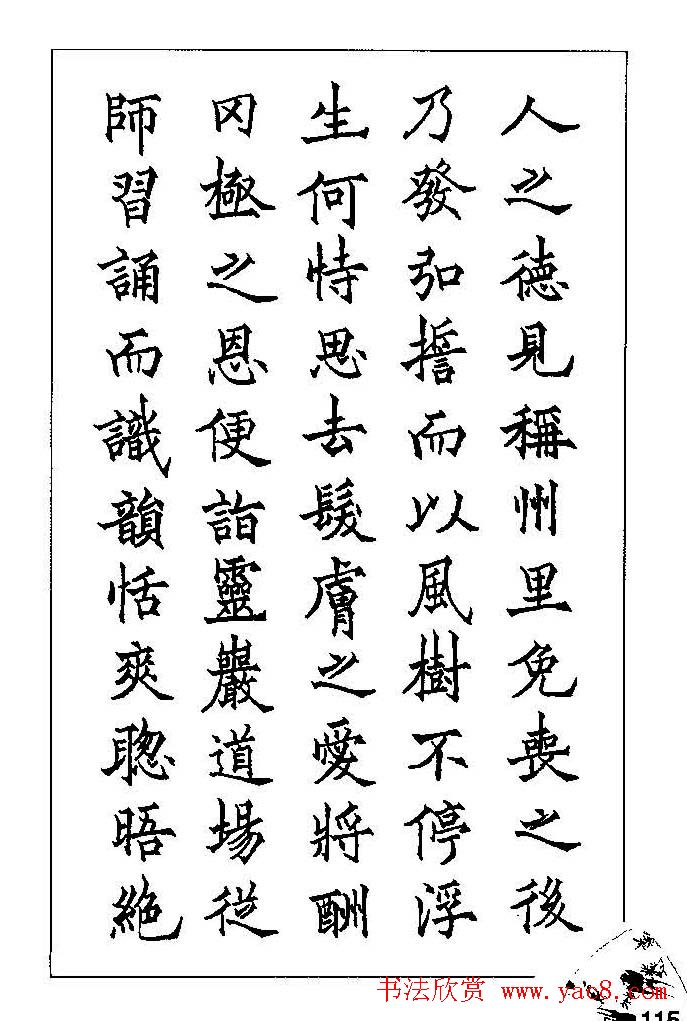 人之德見稱州里免喪之後
乃發弘誓而以風樹不停浮
生何恃思去髮膚之愛將酬
罔極之恩便詣靈巖道場從
師習誦而識韻恬爽聰晤絶
书法欣赏 www.yac8.com
115